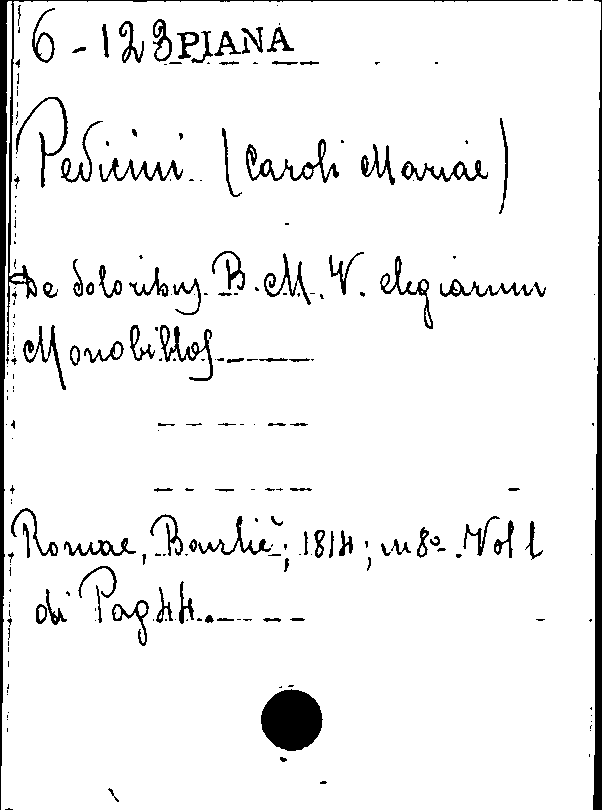 6-123 PIANA
Pedicini (Caroli Mariae)
De doloribus B. M. V. elegiarum
Monobiblos
Romae, Bourlié; 1814; in 8º. Vol 1
di Pag 44.